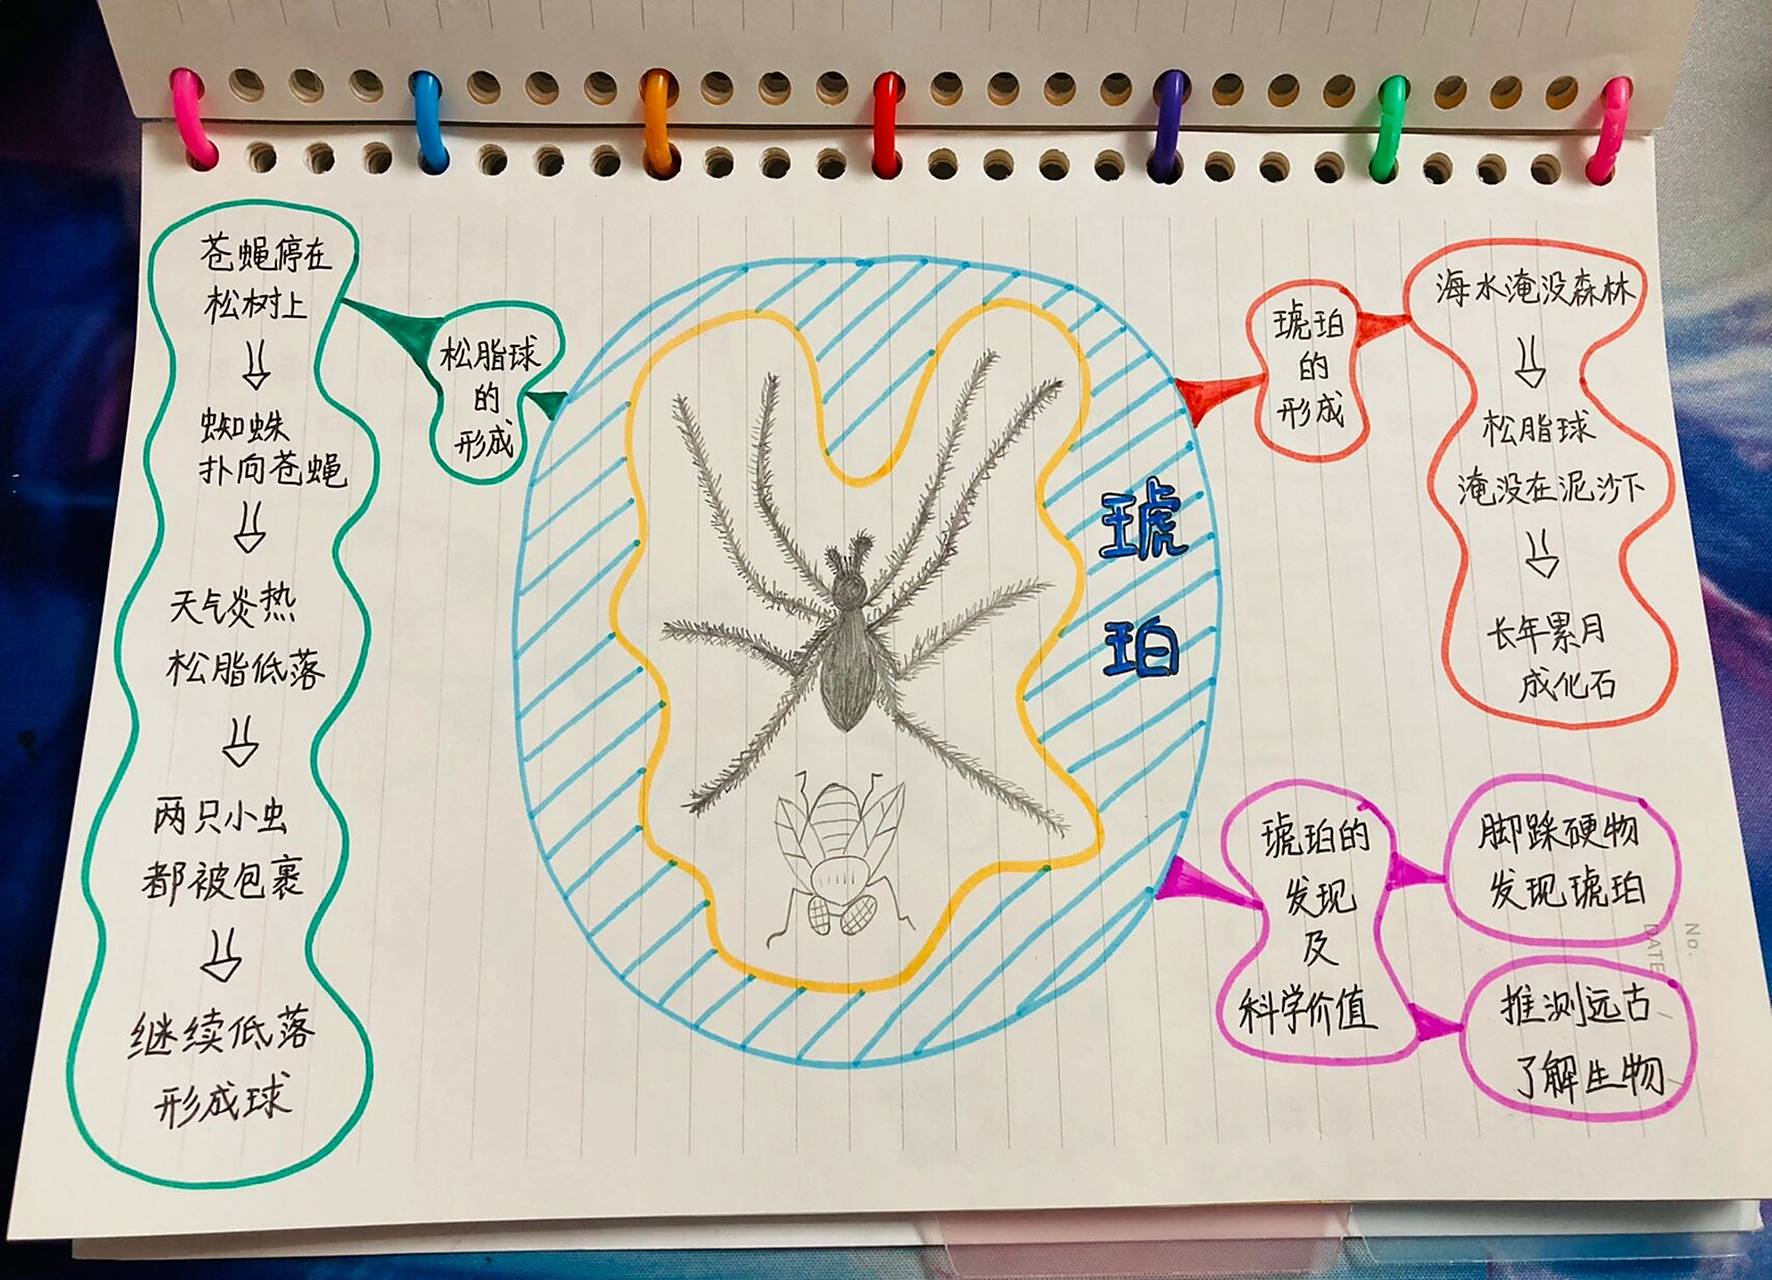 苍蝇停在
松树上
蜘蛛
扑向苍蝇
天气炎热
松脂低落
两只小虫
都被包裹
继续低落
形成球
松脂球
的
形成
琥
珀
琥珀
的
形成
海水淹没森林
松脂球
淹没在泥沙下
长年累月
成化石
琥珀的
发现
及
科学价值
脚踩硬物
发现琥珀
推测远古
了解生物
No.
DATE